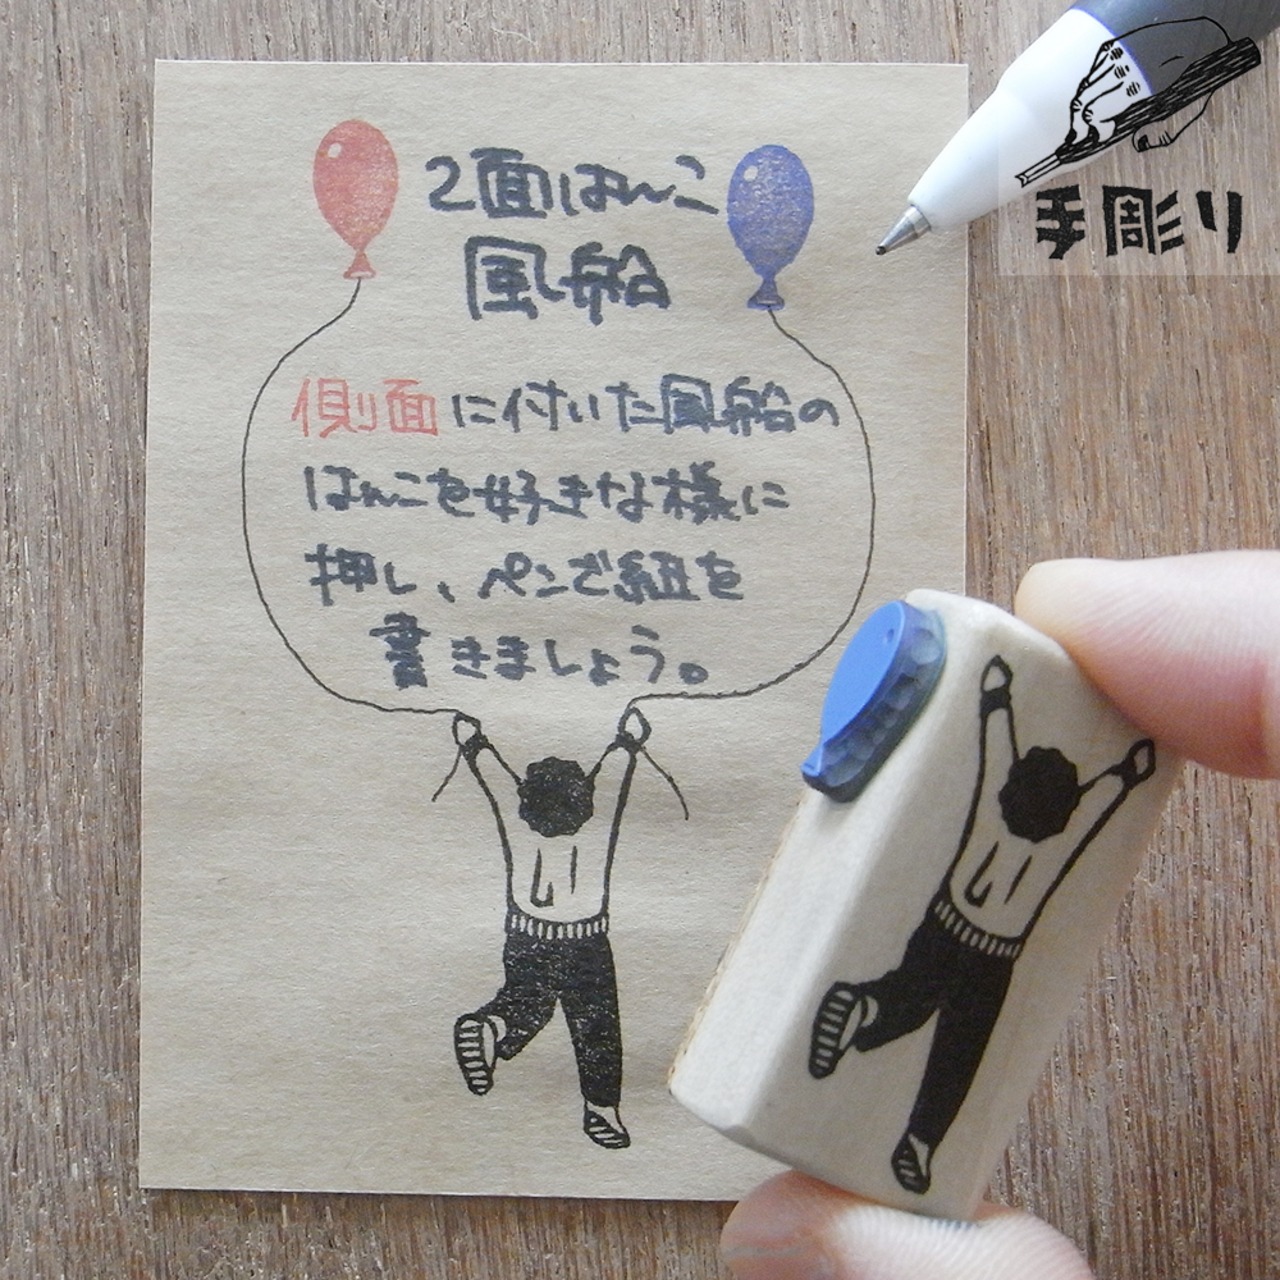 2面はんこ
風船
側面に付いた風船の
はんこを好きな様に
押し、ペンで紐を
書きましょう。
手彫り